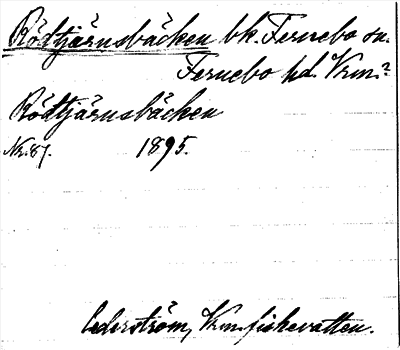 Rödtjärnsbäcken bk. Fernebo sn.
Fernebo hd. Vrm.
Rödtjärnsbäcken
Nr. 87. 1895.
Cederström, Vrm. fiskevatten.